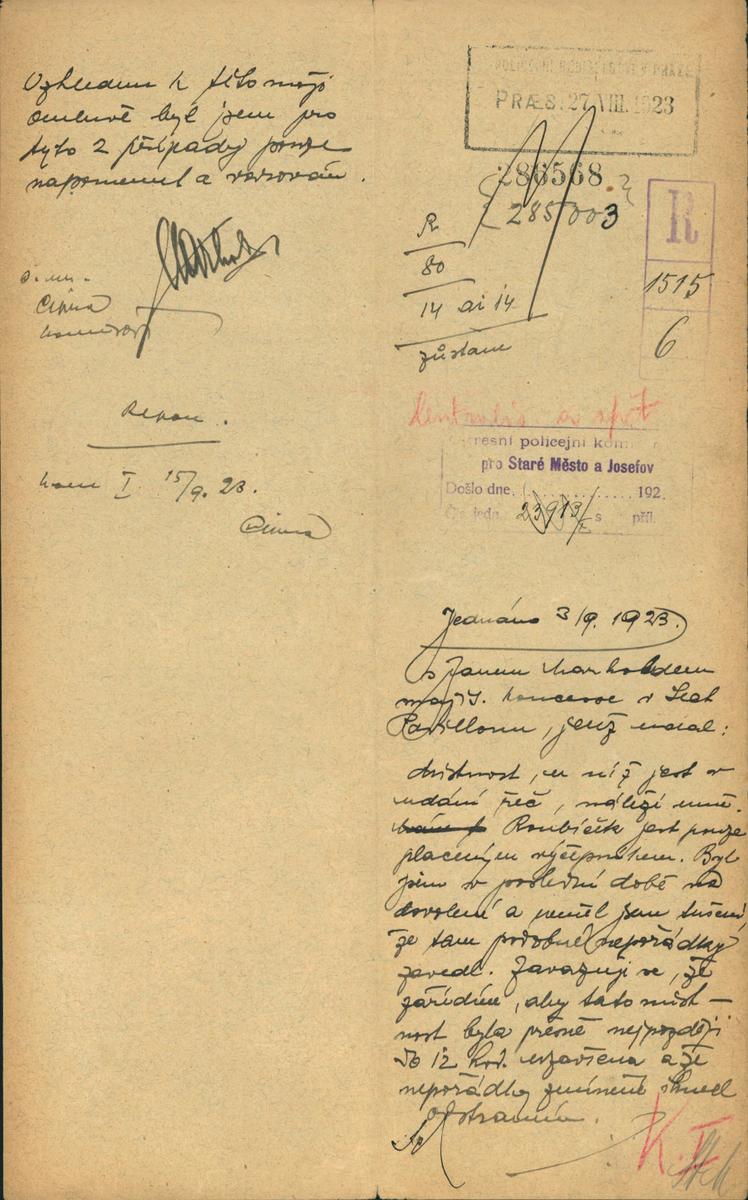 Vzhledem k této mojí
omluvě byl jsem pro
tyto 2 případy pouze
napomenut a varován.
Repon.
kom I 15/9. 23.
POLICEJNÍ ŘEDITELSTVÍ V PRAZE
PRÆS. 27.VIII.1923
286568
285003
R
80
14 ai 14
zůstane
R
1515
6
a zpět
Okresní policejní kom
pro Staré Město a Josefov
Došlo dne 192
Čís. jedn. 23913/I s příl.
Jednáno 3/9. 1923.
s Janem Markoldem
maj. koncesse v
Pavillonu, jenž udal:
Místnost, o níž jest v
udání řeč, náleží mně.
Roubíček jest pouze
placeným výčepníkem. Byl
jsem v poslední době na
dovolené a neměl jsem tušení,
že tam podobné nepořádky
zavedl. Zavazuji se, že
zařídím, aby tato míst-
nost byla přesně nejpozději
do 12 hod. uzavřena a že
nepořádky zmíněné ihned
odstraním.
K. I